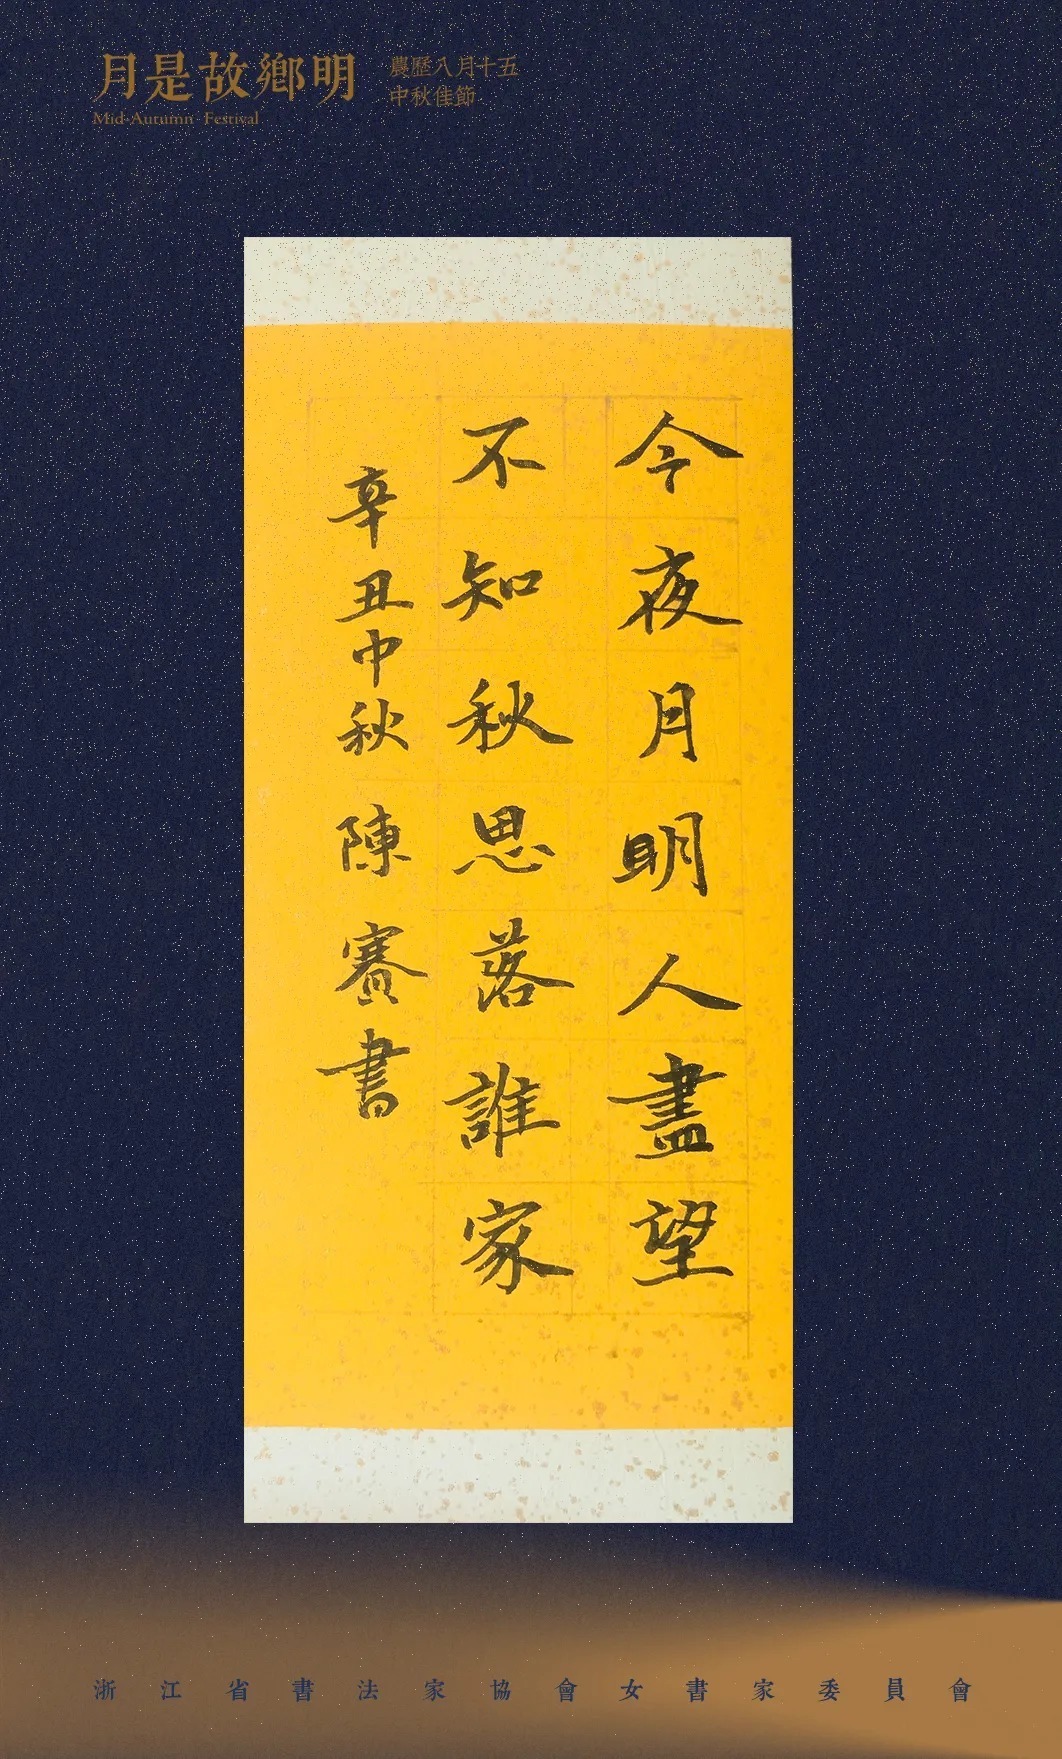 月是故鄉明
Mid-Autumn Festival
農歷八月十五
中秋佳節
今夜月明人盡望
不知秋思落誰家
辛丑中秋 陳賽書
浙江省書法家協會女書家委員會